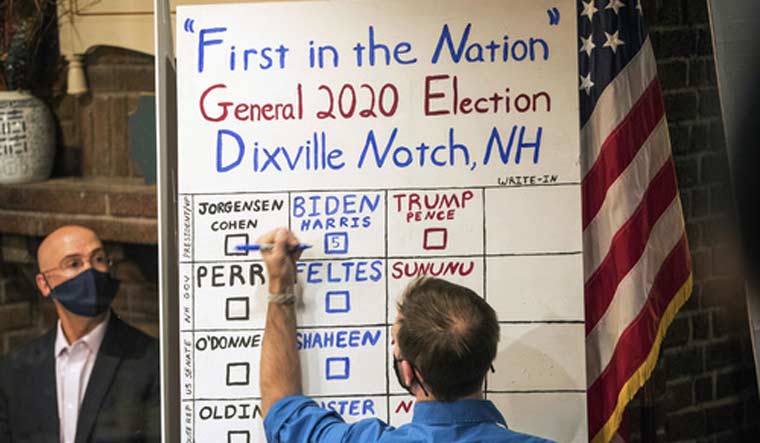 "First in the Nation"
General 2020 Election
Dixville Notch, NH
WRITE-IN
PRESIDENT/VP
JORGENSEN BIDEN TRUMP
COHEN HARRIS PENCE
5
NH GOV
PERR FELTES SUNUNU
US SENATE
O'DONNE SHAHEEN
OLDIN STER N